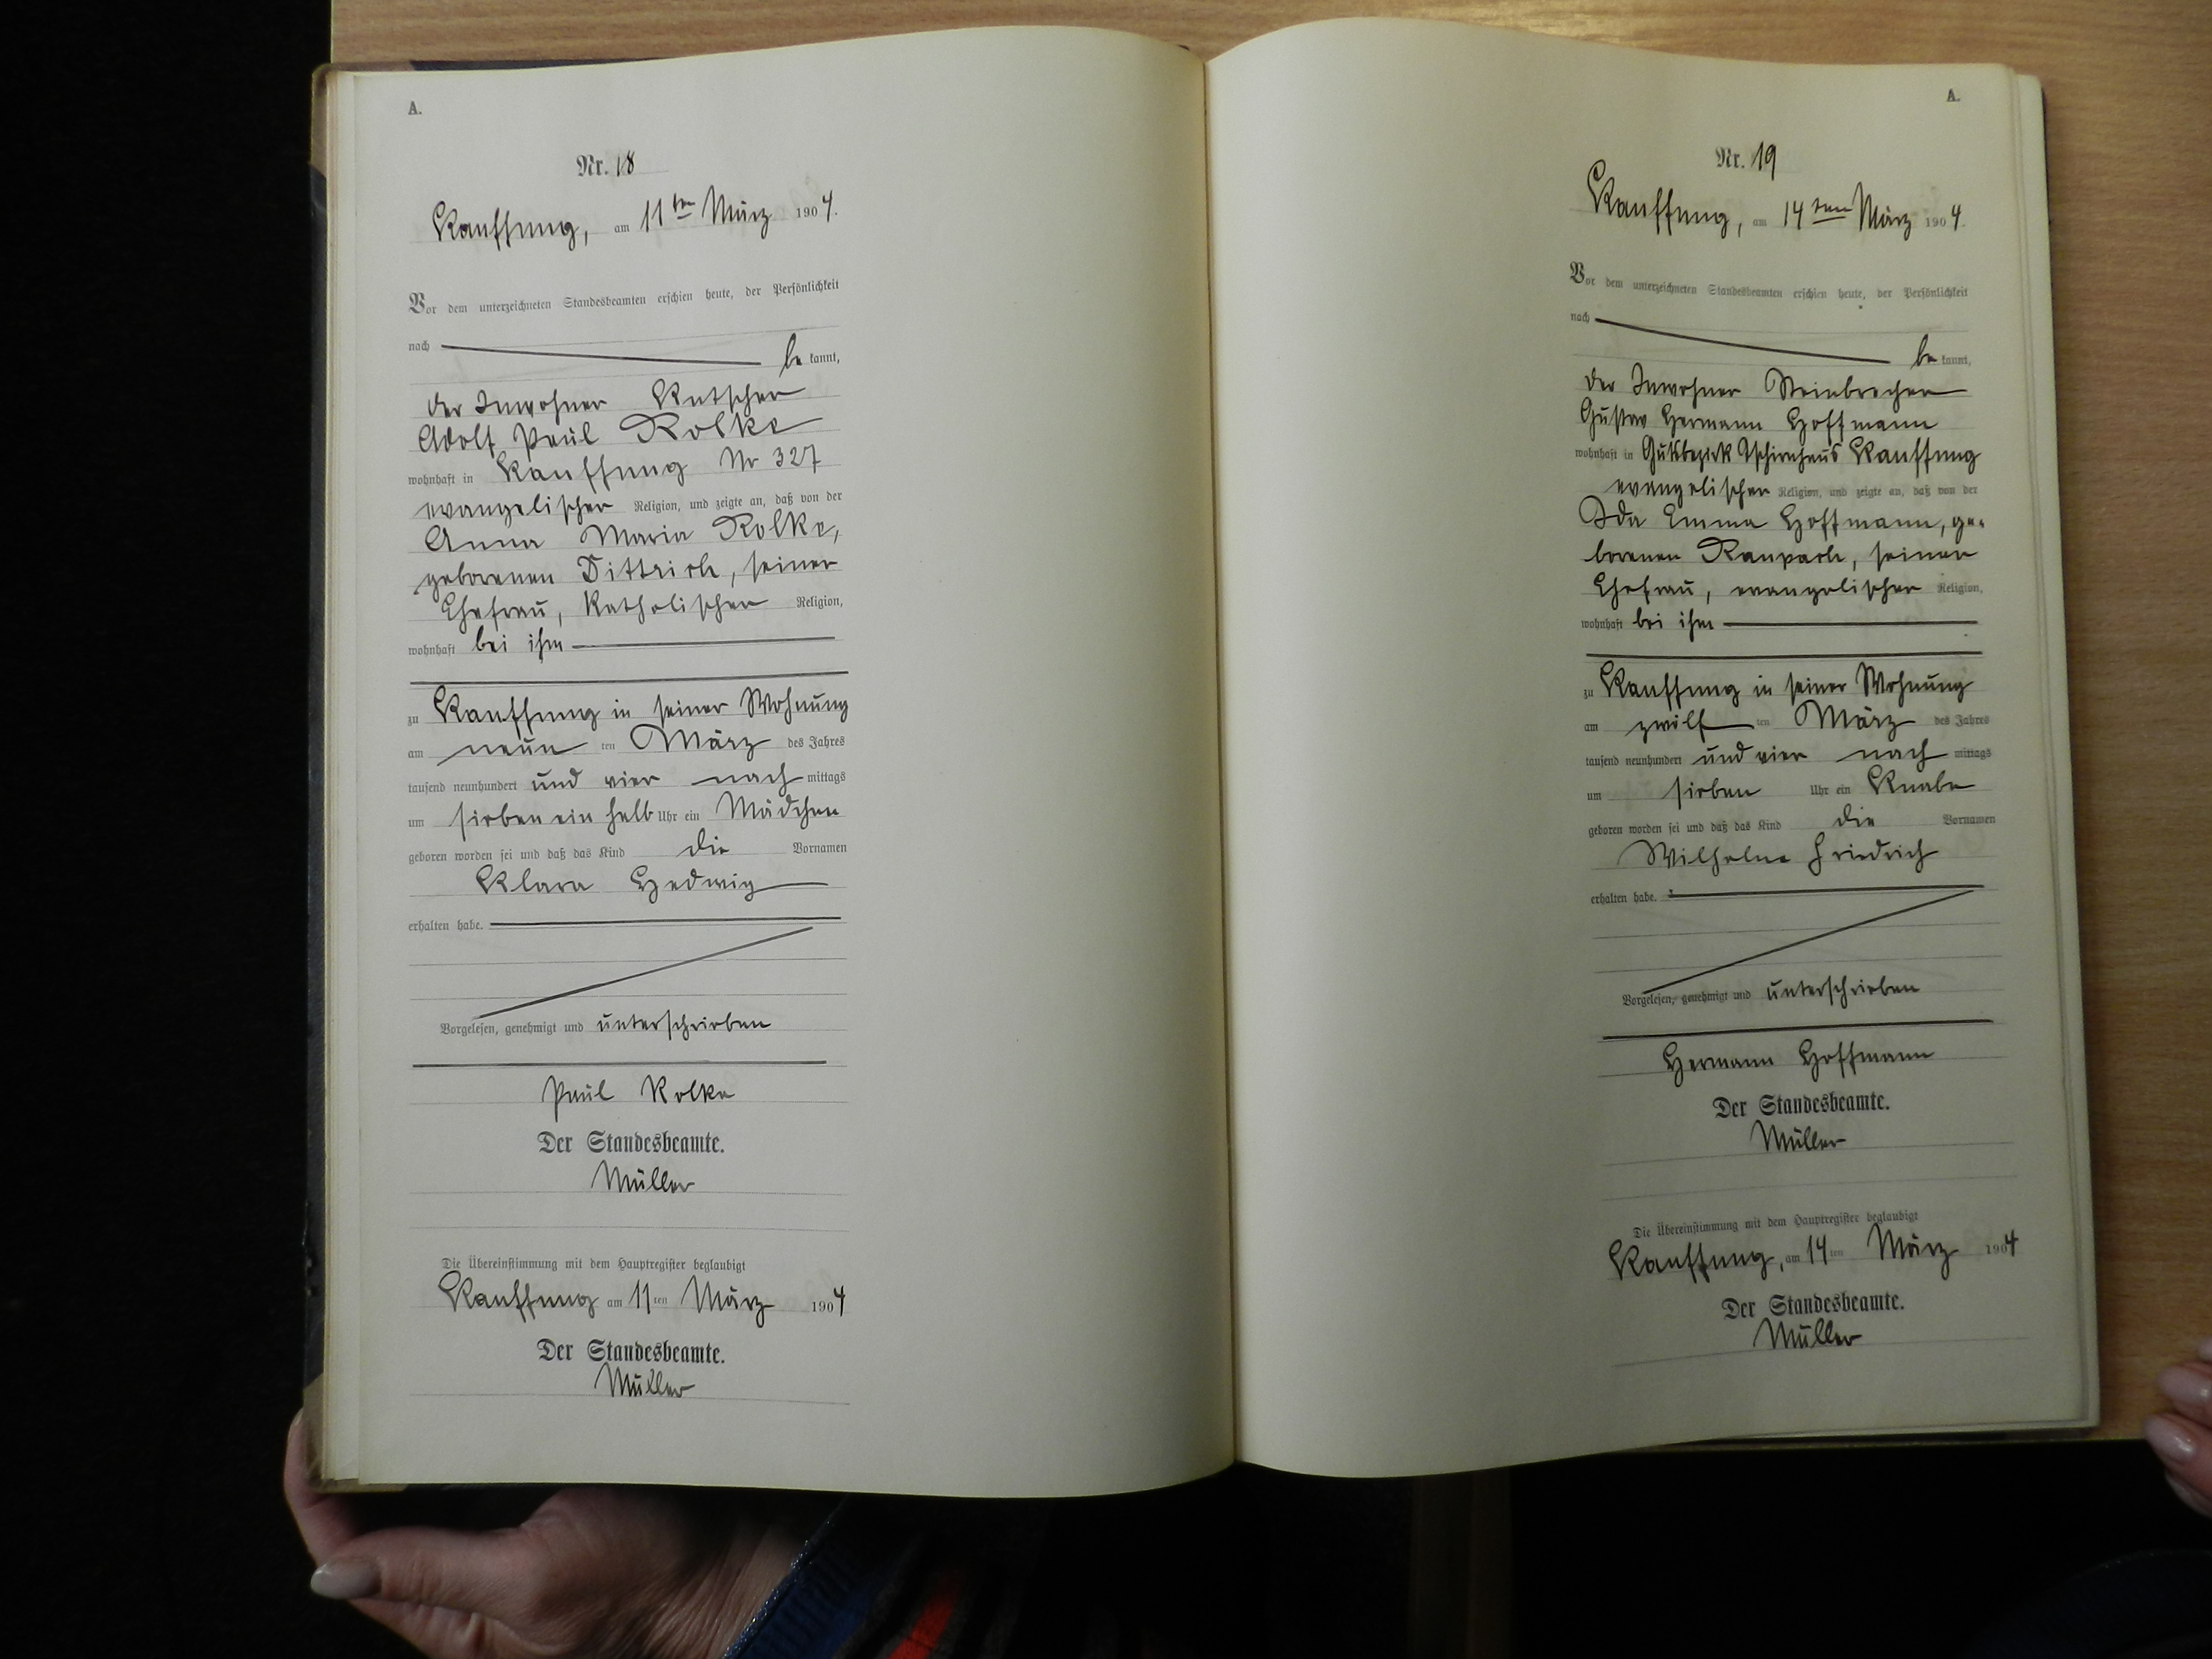 A.
Nr. 18
Kauffung, am 11ten März 1904.
Vor dem unterzeichneten Standesbeamten erschien heute, der Persönlichkeit
nach bekannt,
der Inwohner Kutscher
Adolf Paul Rolke
wohnhaft in Kauffung Nr 327
evangelischer Religion, und zeigte an, daß von der
Anna Maria Rolke,
geborenen Dittrich, seiner
Ehefrau, katholischer Religion,
wohnhaft bei ihm
zu Kauffung in seiner Wohnung
am neun ten März des Jahres
tausend neunhundert und vier nachmittags
um sieben ein halb Uhr ein Mädchen
geboren worden sei und daß das Kind die Vornamen
Klara Hedwig
erhalten habe.
Vorgelesen, genehmigt und unterschrieben
Paul Rolke
Der Standesbeamte.
Müller
Die Übereinstimmung mit dem Hauptregister beglaubigt
Kauffung am 11ten März 1904
Der Standesbeamte.
Müller
A.
Nr. 19
Kauffung, am 14ten März 1904.
Vor dem unterzeichneten Standesbeamten erschien heute, der Persönlichkeit
nach bekannt,
der Inwohner Steinbrecher
Gustav Hermann Hoffmann
wohnhaft in Gutsbezirk Tschirnhaus Kauffung
evangelischer Religion, und zeigte an, daß von der
Ida Emma Hoffmann, ge-
borenen Raupach, seiner
Ehefrau, evangelischer Religion,
wohnhaft bei ihm
zu Kauffung in seiner Wohnung
am zwölf ten März des Jahres
tausend neunhundert und vier nachmittags
um sieben Uhr ein Knabe
geboren worden sei und daß das Kind die Vornamen
Wilhelm Friedrich
erhalten habe.
Vorgelesen, genehmigt und unterschrieben
Hermann Hoffmann
Der Standesbeamte.
Müller
Die Übereinstimmung mit dem Hauptregister beglaubigt
Kauffung, am 14ten März 1904
Der Standesbeamte.
Müller